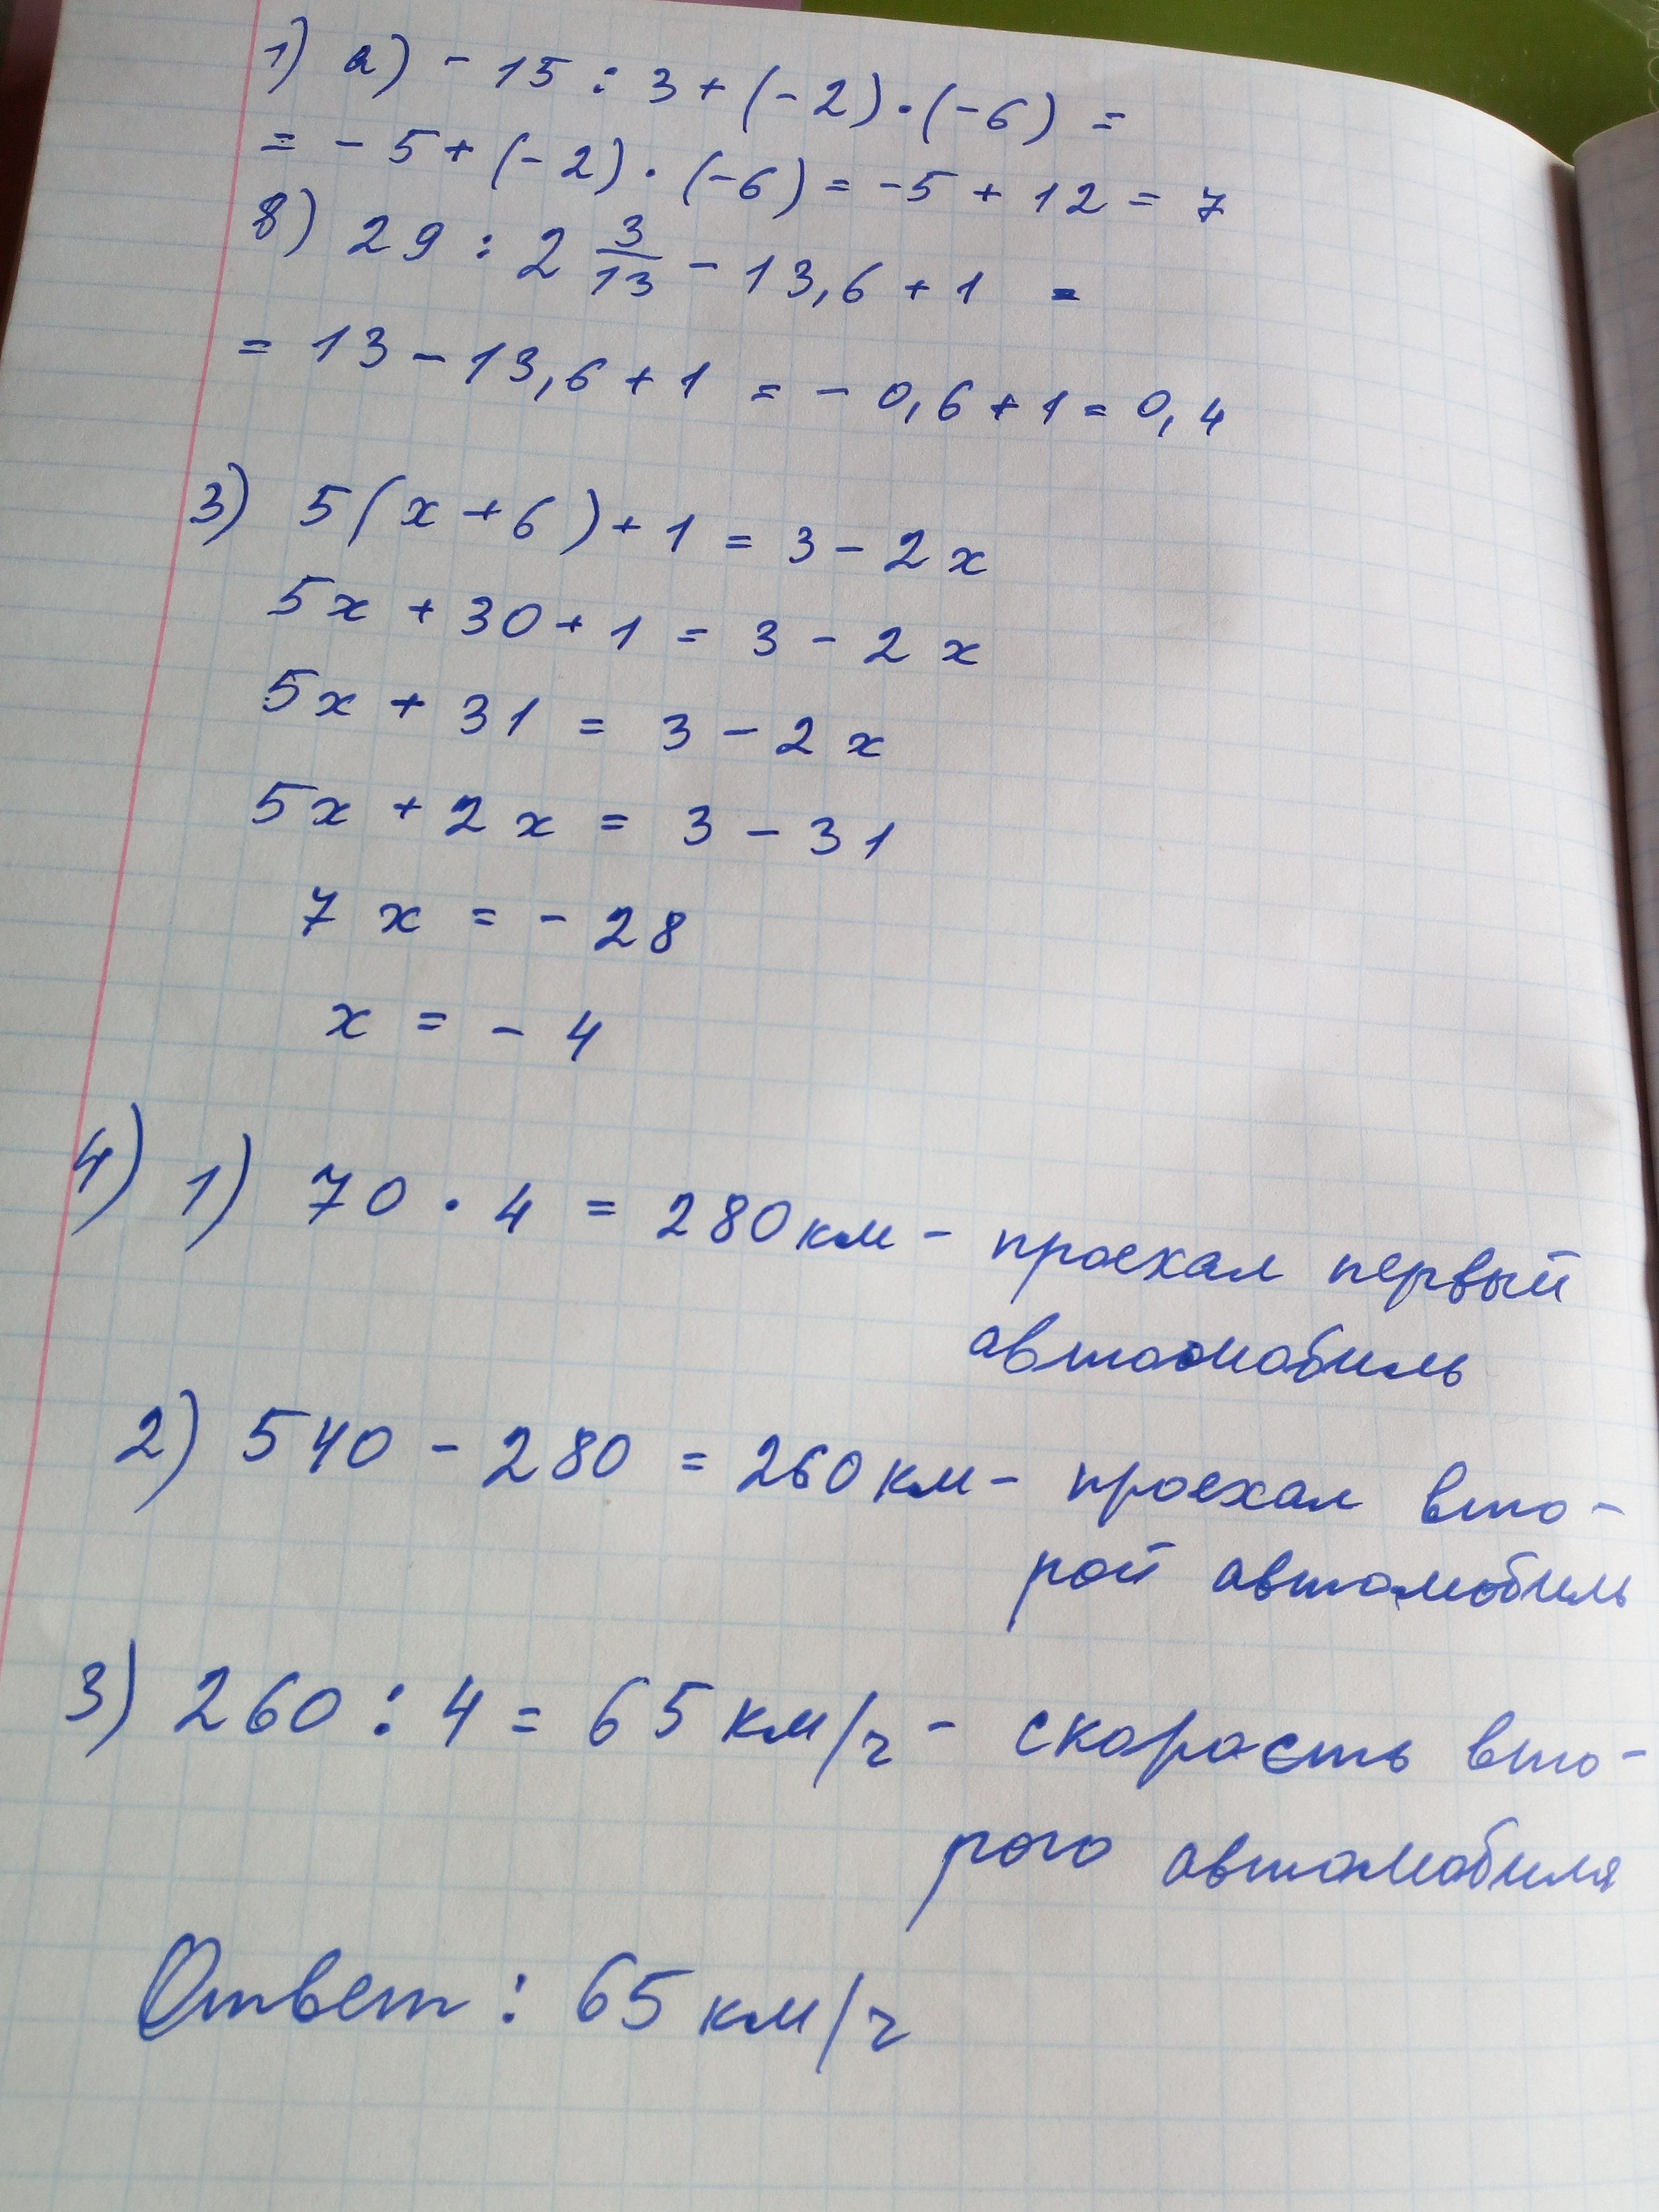 1) а) - 15 : 3 + (- 2) · (- 6) =
= - 5 + (- 2) · (- 6) = - 5 + 12 = 7
в) 29 : 2 3/13 - 13,6 + 1 =
= 13 - 13,6 + 1 = - 0,6 + 1 = 0,4
3) 5 (x + 6) + 1 = 3 - 2x
5x + 30 + 1 = 3 - 2x
5x + 31 = 3 - 2x
5x + 2x = 3 - 31
7x = - 28
x = - 4
4) 1) 70 · 4 = 280 км - проехал первый
автомобиль
2) 540 - 280 = 260 км - проехал вто-
рой автомобиль
3) 260 : 4 = 65 км/ч - скорость вто-
рого автомобиля
Ответ : 65 км/ч